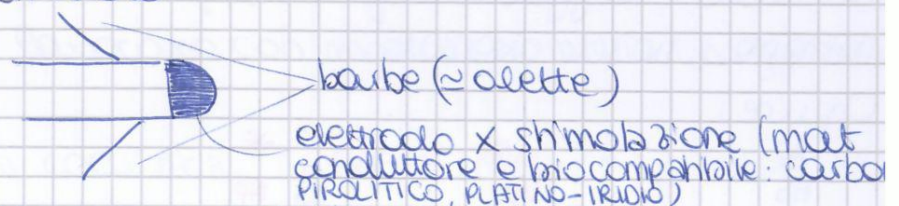 barbe (≃ alette)
elettrodo x stimolazione (mat
conduttore e biocompatibile: carbo
PIROLITICO, PLATINO-IRIDIO)